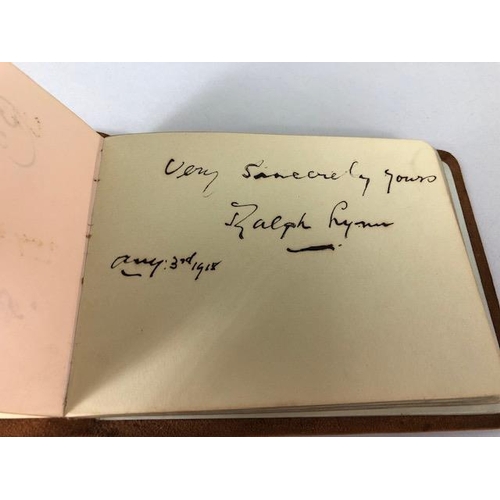 Very Sincerely Yours
Ralph Lynn
Aug: 3rd 1918